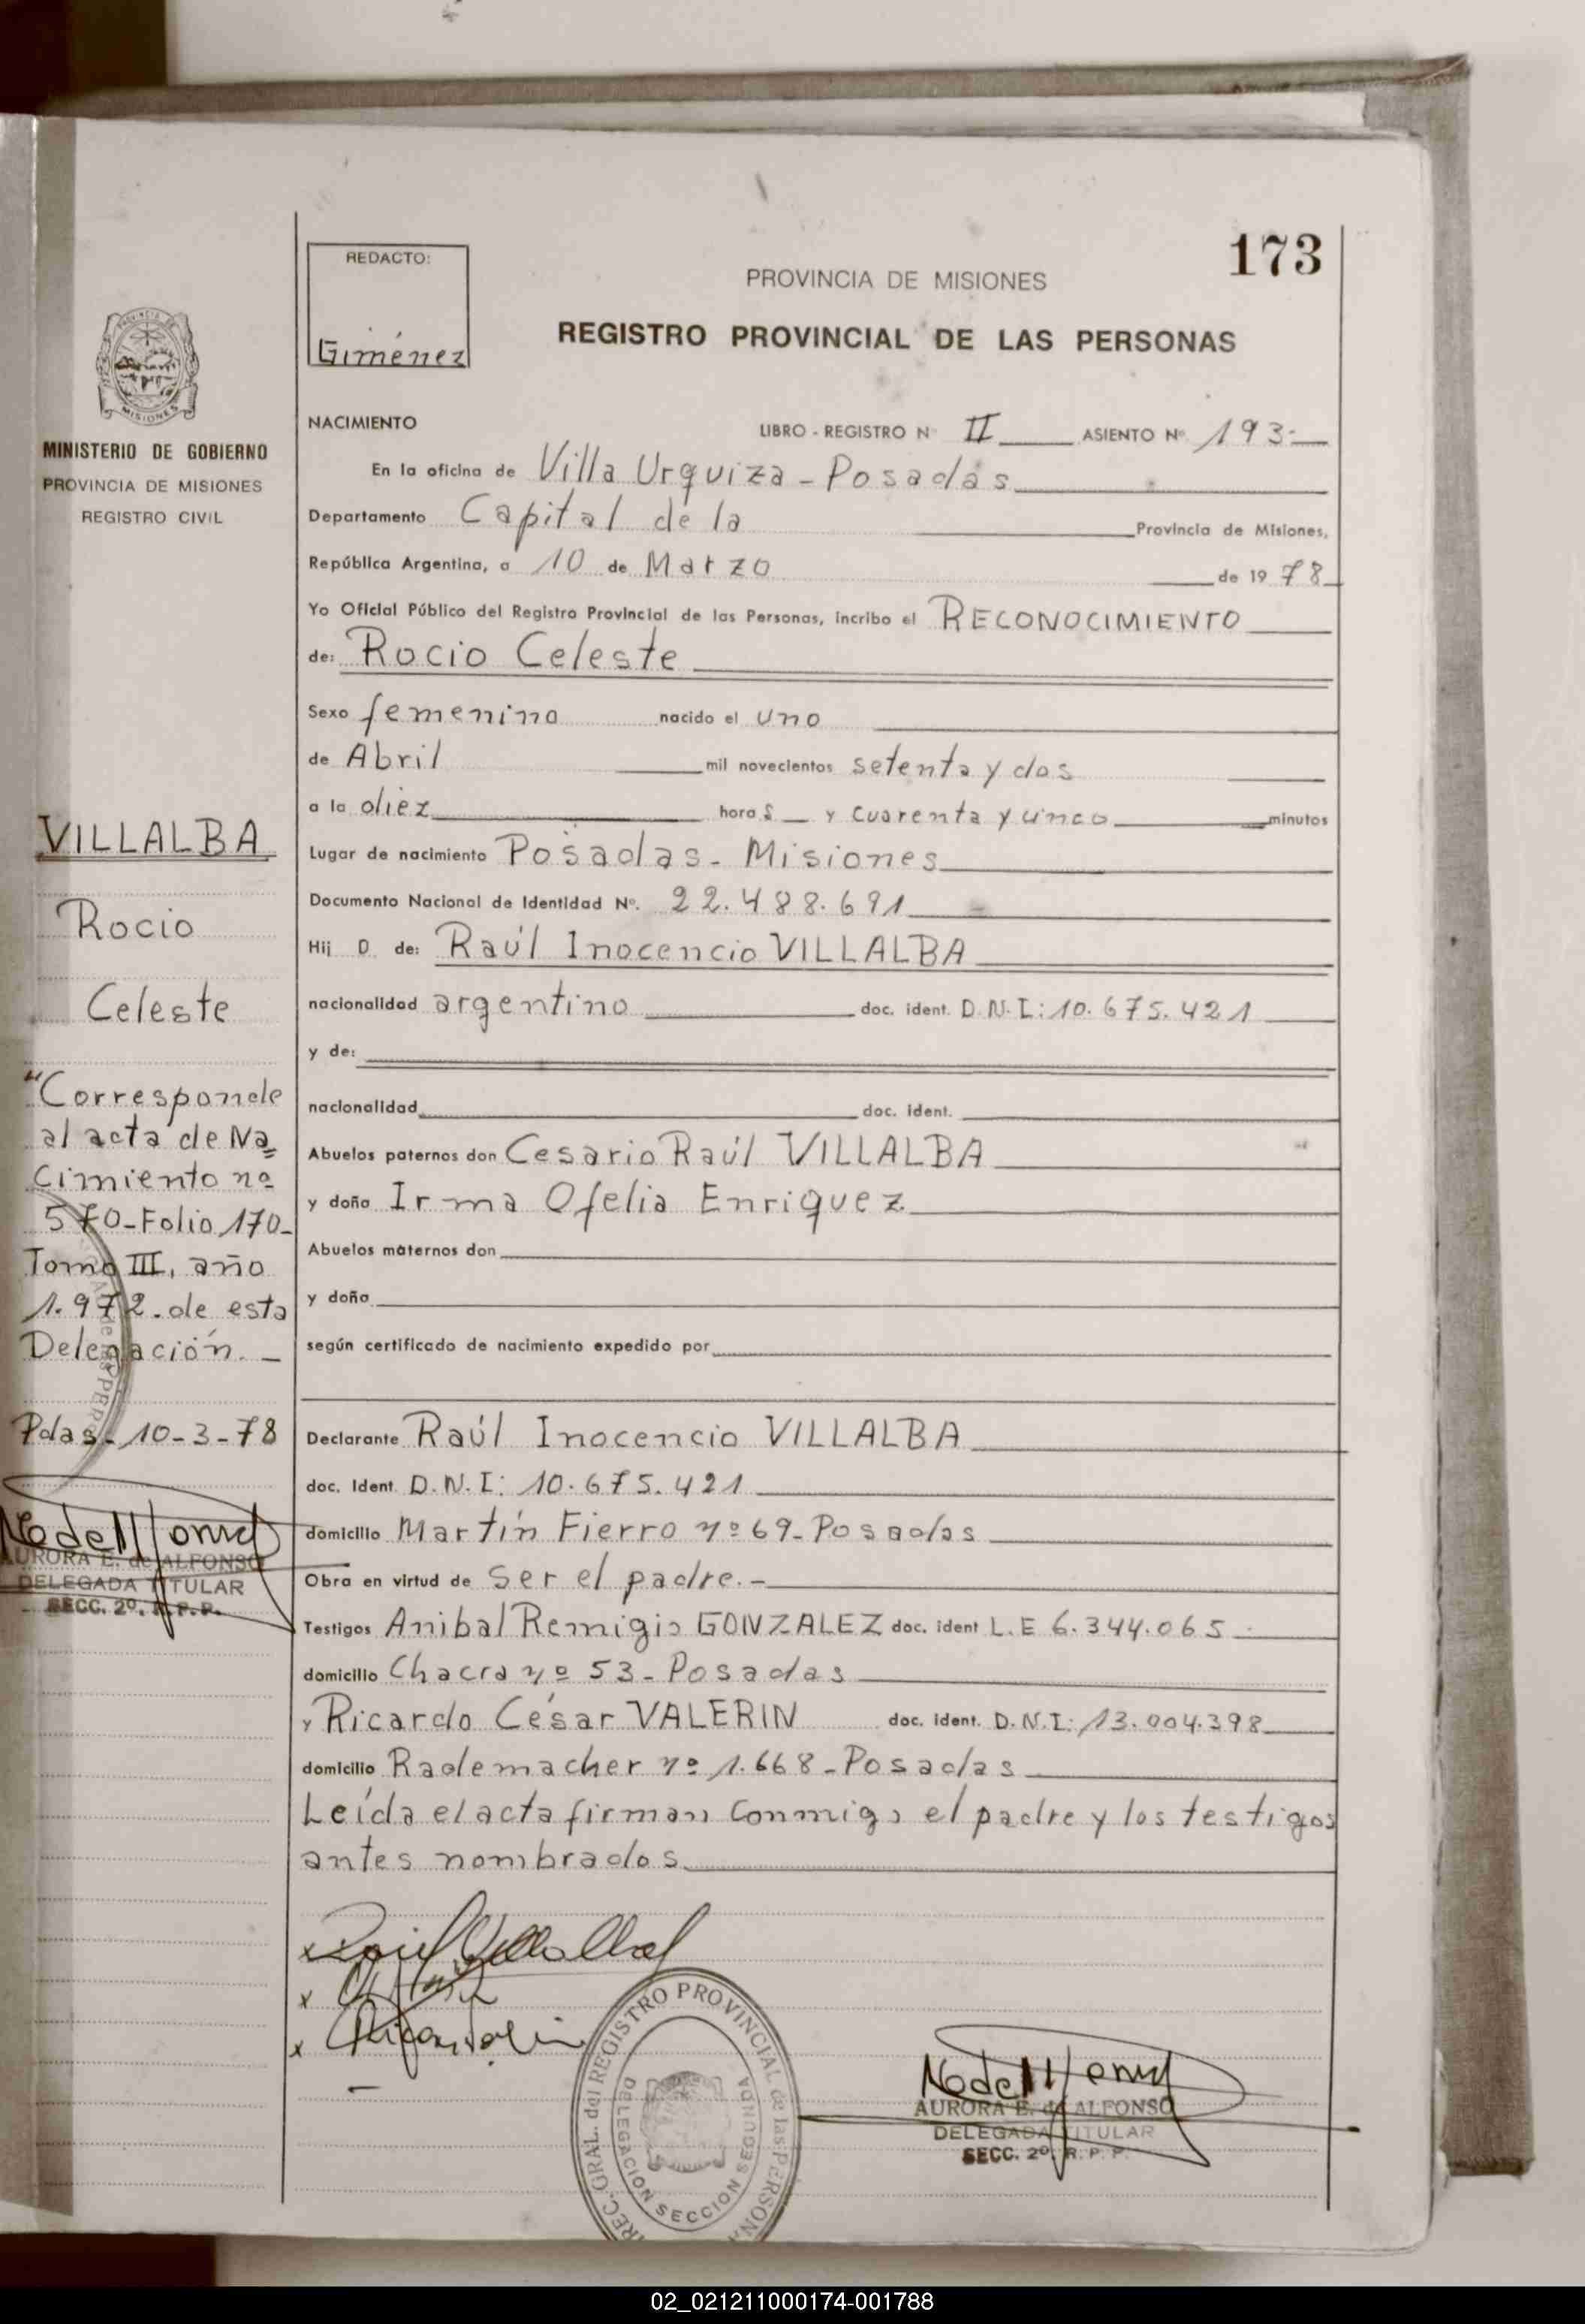 173
REDACTO:
Giménez
PROVINCIA DE MISIONES
REGISTRO PROVINCIAL DE LAS PERSONAS
PROVINCIA DE
MISIONES
MINISTERIO DE GOBIERNO
PROVINCIA DE MISIONES
REGISTRO CIVIL
VILLALBA
Rocio
Celeste
"Corresponde
al acta de Na=
cimiento nº
570-Folio 170-
Tomo III, año
1.972-de esta
Delegación. -
Pdas- 10-3-78
AURORA E. de ALFONSO
DELEGADA TITULAR
SECC. 2º. R.P.P.
NACIMIENTO LIBRO - REGISTRO Nº II ASIENTO Nº 193-
En la oficina de Villa Urquiza - Posadas
Departamento Capital de la Provincia de Misiones,
República Argentina, a 10 de Marzo de 19 78
Yo Oficial Público del Registro Provincial de las Personas, incribo el RECONOCIMIENTO
de: Rocio Celeste
Sexo femenino nacido el uno
de Abril mil novecientos setenta y dos
a la diez hora s y cuarenta y cinco minutos
Lugar de nacimiento Posadas - Misiones
Documento Nacional de Identidad Nº. 22.488.691
Hij a de: Raúl Inocencio VILLALBA
nacionalidad argentino doc. ident. D.N.I: 10.675.421
y de:
nacionalidad doc. ident.
Abuelos paternos don Cesario Raúl VILLALBA
y doña Irma Ofelia Enriquez
Abuelos maternos don
y doña
según certificado de nacimiento expedido por
Declarante Raúl Inocencio VILLALBA
doc. ident. D.N.I: 10.675.421
domicilio Martín Fierro nº 69- Posadas
Obra en virtud de ser el padre.-
Testigos Anibal Remigio GONZALEZ doc. ident L.E 6.344.065
domicilio Chacra nº 53- Posadas
y Ricardo César VALERIN doc. ident. D.N.I: 13.004.398
domicilio Rademacher nº 1.668- Posadas
Leída el acta firman conmigo el padre y los testigos
antes nombrados
REC. GRAL. del REGISTRO PROVINCIAL de las PERSONA
DELEGACION SECCION SEGUNDA
AURORA E. de ALFONSO
DELEGADA TITULAR
SECC. 2º. R. P. P.
02_021211000174-001788